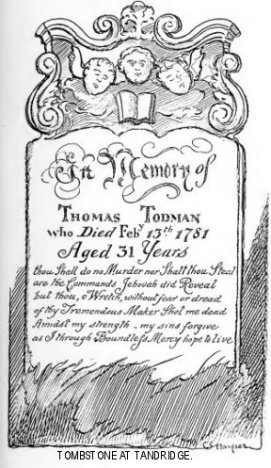 In Memory of
THOMAS TODMAN
who Died Feby 13th 1781
Aged 31 Years
thou Shall do no Murder nor Shalt thou Steal
are the Commands Jehovah did Reveal
but thou, O Wretch, without fear or dread
of thy Tremendous Maker Shot me dead
Amidst my strength - my sins forgive
as I through Boundless Mercy hope to live
C G Harper
TOMBSTONE AT TANDRIDGE.